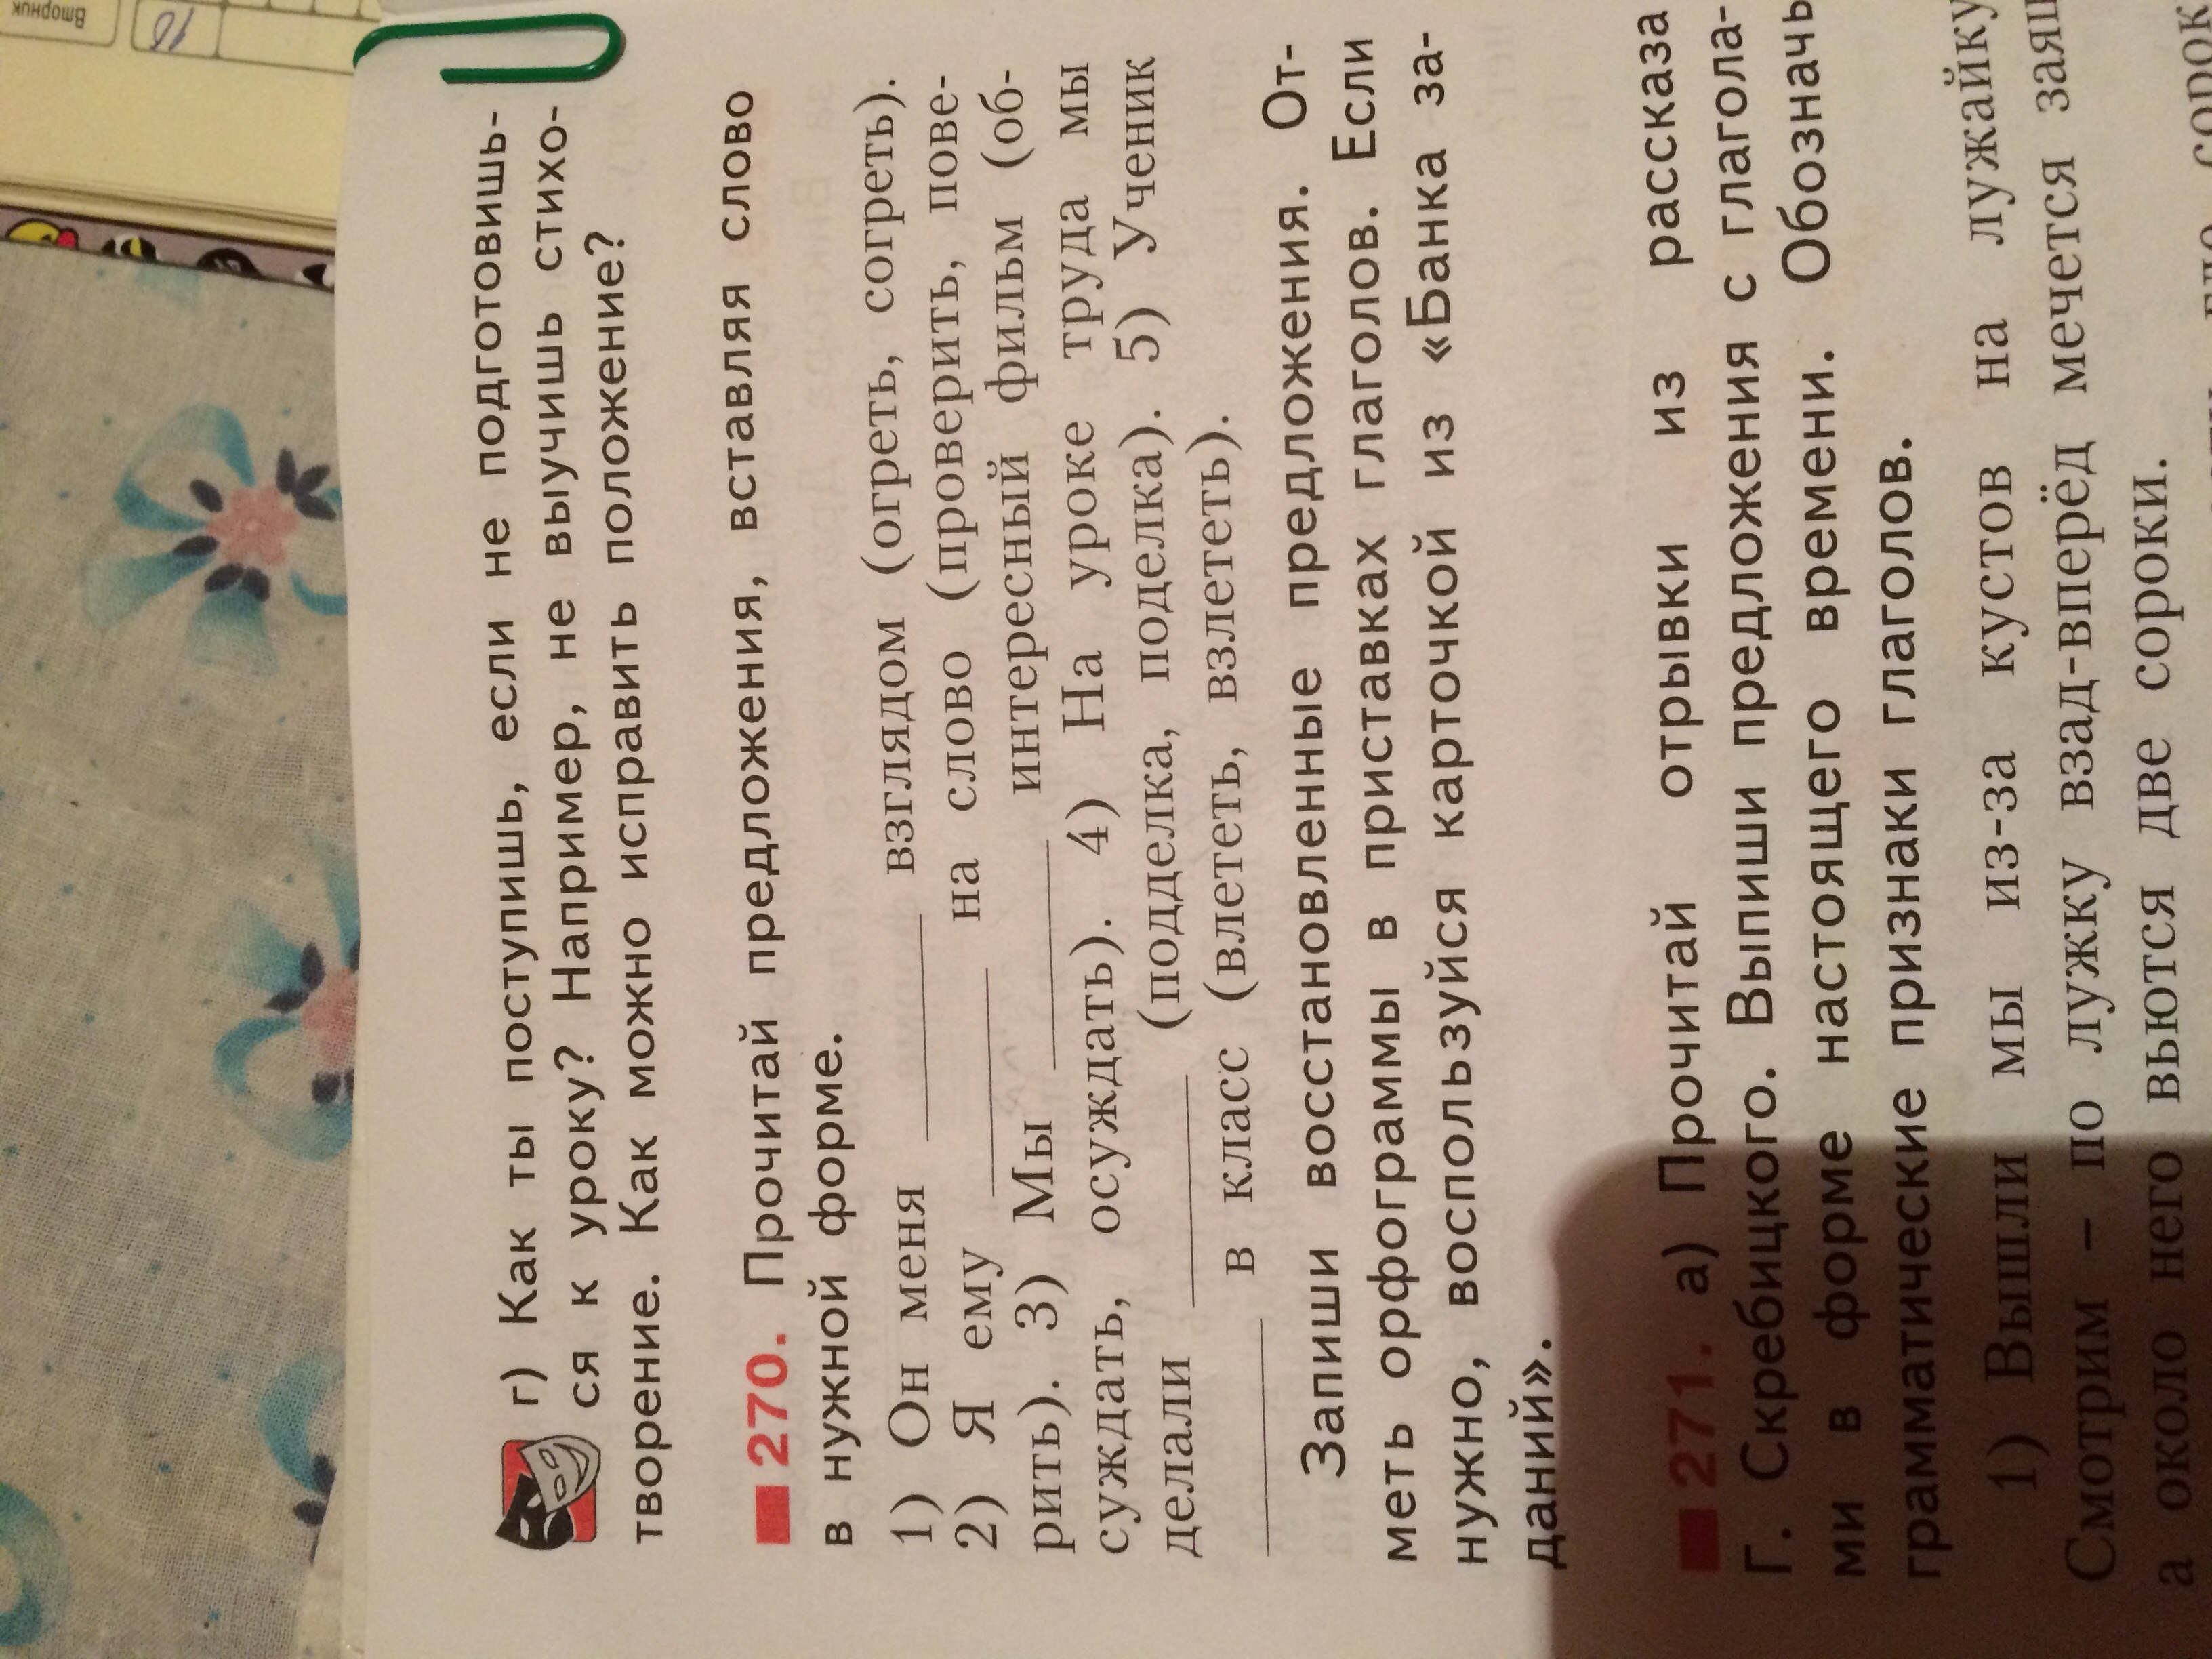 Вторник
16
г) Как ты поступишь, если не подготовишь-
ся к уроку? Например, не выучишь стихо-
творение. Как можно исправить положение?
270. Прочитай предложения, вставляя слово
в нужной форме.
1) Он меня ______ взглядом (огреть, согреть).
2) Я ему ______ на слово (проверить, пове-
рить). 3) Мы ______ интересный фильм (об-
суждать, осуждать). 4) На уроке труда мы
делали ______ (подделка, поделка). 5) Ученик
______ в класс (влететь, взлететь).
Запиши восстановленные предложения. От-
меть орфограммы в приставках глаголов. Если
нужно, воспользуйся карточкой из «Банка за-
даний».
271. а) Прочитай отрывки из рассказа
Г. Скребицкого. Выпиши предложения с глагола-
ми в форме настоящего времени. Обозначь
грамматические признаки глаголов.
1) Вышли мы из-за кустов на лужайку
Смотрим – по лужку взад-вперёд мечется
а около него вьются две сороки.